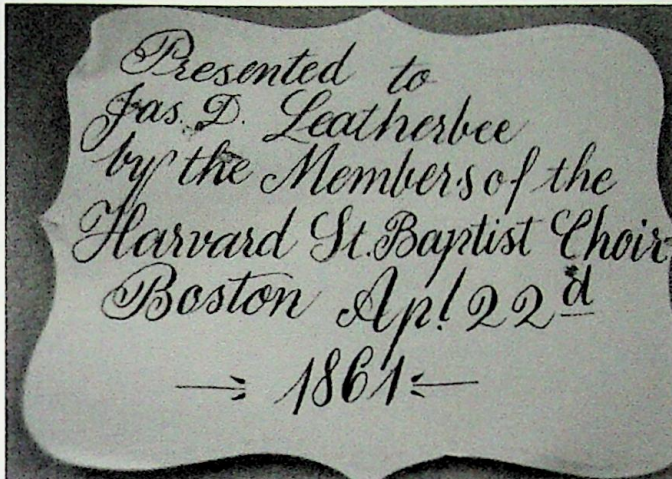 Presented to
Jas. D. Leatherbee
by the Members of the
Harvard St. Baptist Choir,
Boston Apl. 22d
1861